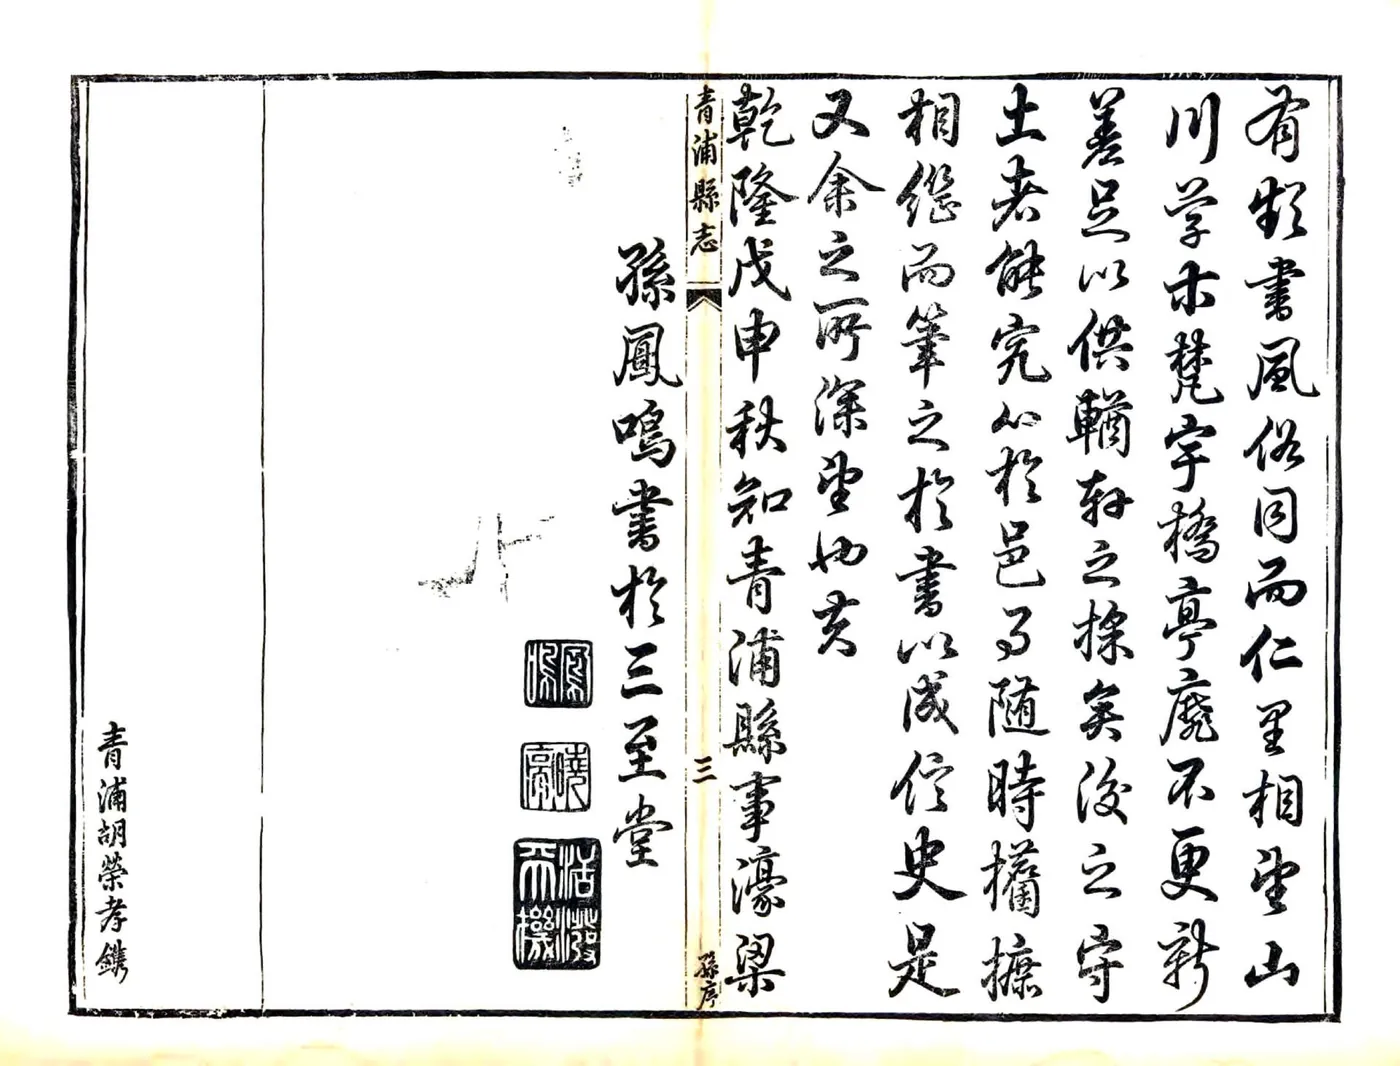 有類書風俗同而仁里相望山
川草木梵宇橋亭靡不更新
差足以供輶軒之採矣後之守
土者能究心於邑事随時攟摭
相繼而筆之於書以成信史是
又余之所深望也夫
乾隆戊申秋知青浦縣事濠梁
青浦縣志 三 孫序
孫鳳鳴書於三至堂
鳳鳴
活潑天機
青浦胡榮孝鐫